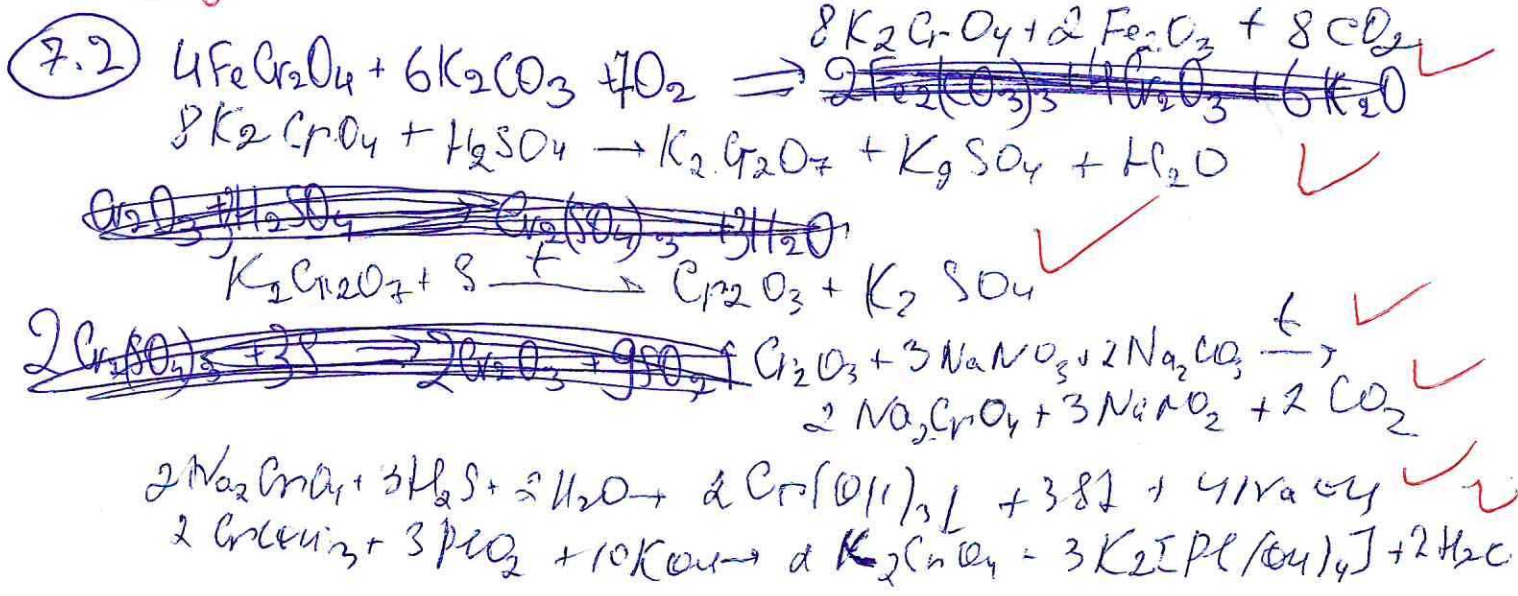 8K₂CrO₄ + 2Fe₂O₃ + 8CO₂
7.2 4FeCr₂O₄ + 6K₂CO₃ + 7O₂ ⇒ 2Fe₂(CO₃)₃ + 4Cr₂O₃ + 6K₂O
8K₂CrO₄ + H₂SO₄ → K₂Cr₂O₇ + K₂SO₄ + H₂O
Cr₂O₃ + 3H₂SO₄ → Cr₂(SO₄)₃ + 3H₂O
K₂Cr₂O₇ + S t→ Cr₂O₃ + K₂SO₄
2Cr₂(SO₄)₃ + 3S → 2Cr₂O₃ + 9SO₂↑ Cr₂O₃ + 3NaNO₃ + 2Na₂CO₃ t→
2Na₂CrO₄ + 3NaNO₂ + 2CO₂
2Na₂CrO₄ + 3H₂S + 2H₂O → 2Cr(OH)₃↓ + 3S↓ + 4NaOH
2Cr(OH)₃ + 3PbO₂ + 10KOH → 2K₂CrO₄ + 3K₂[Pb(OH)₄] + 2H₂O